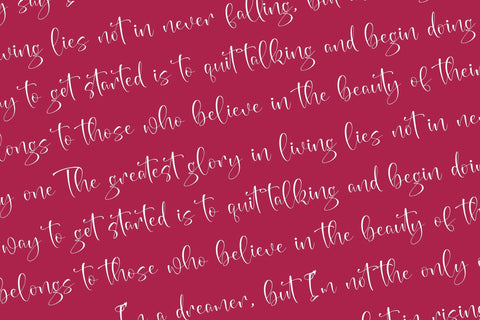 say I
living lies not in never falling, but
way to get started is to quit talking and begin doing
belongs to those who believe in the beauty of their
only one The greatest glory in living lies not in ne
way to get started is to quit talking and begin doin
belongs to those who believe in the beauty of th
I'm a dreamer, but I'm not the only
t in rising